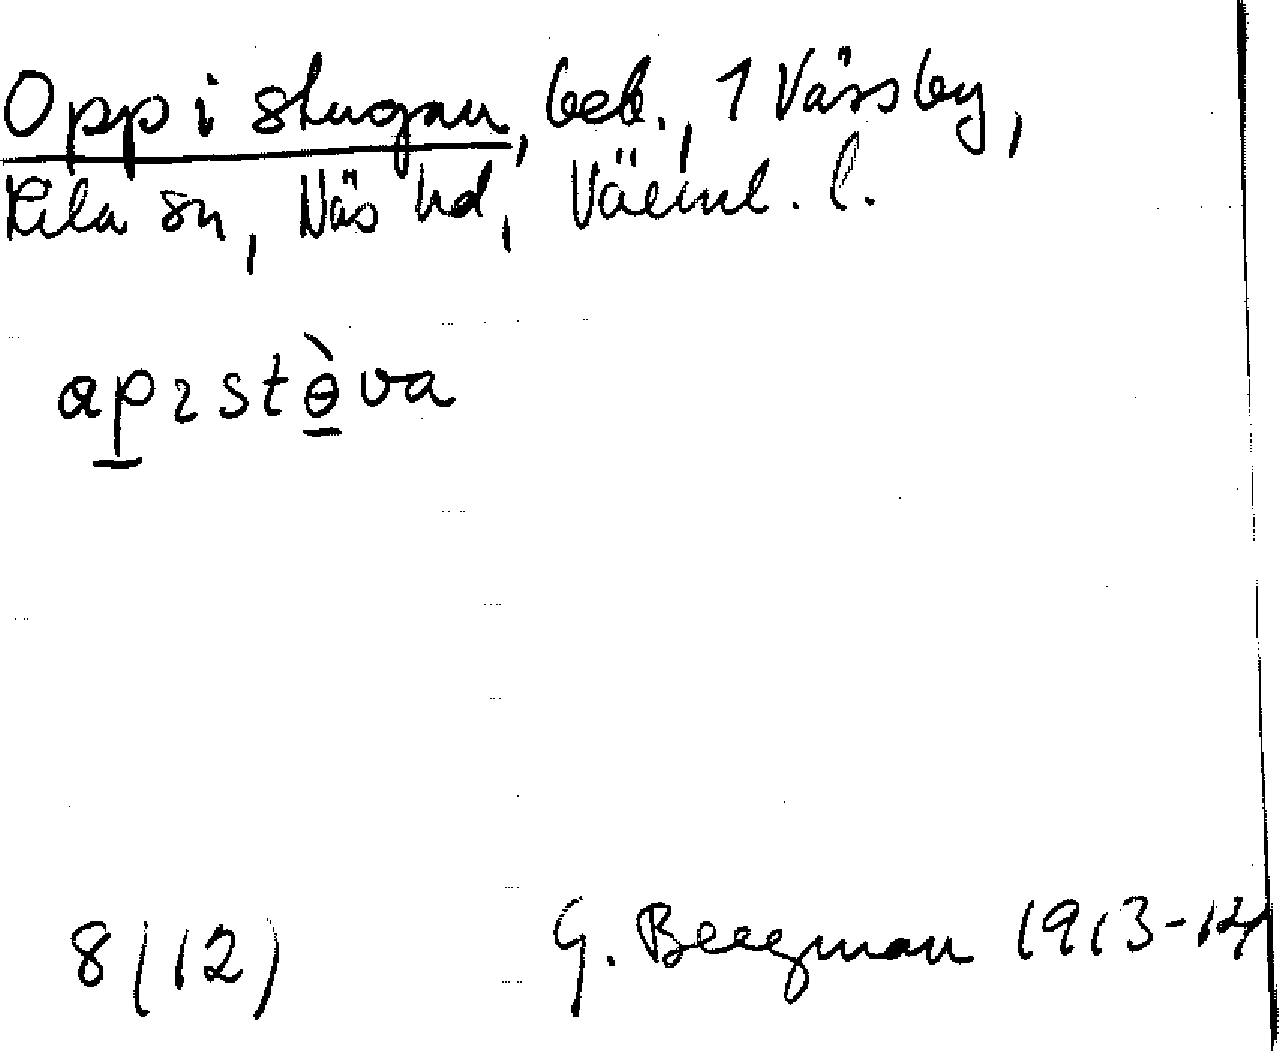 Opp i stugan, beb., 1 Vässby,
Kila sn, Näs hd, Värml. l.
apɩstɵ̀va
8(12)
G. Bergman 1913-14